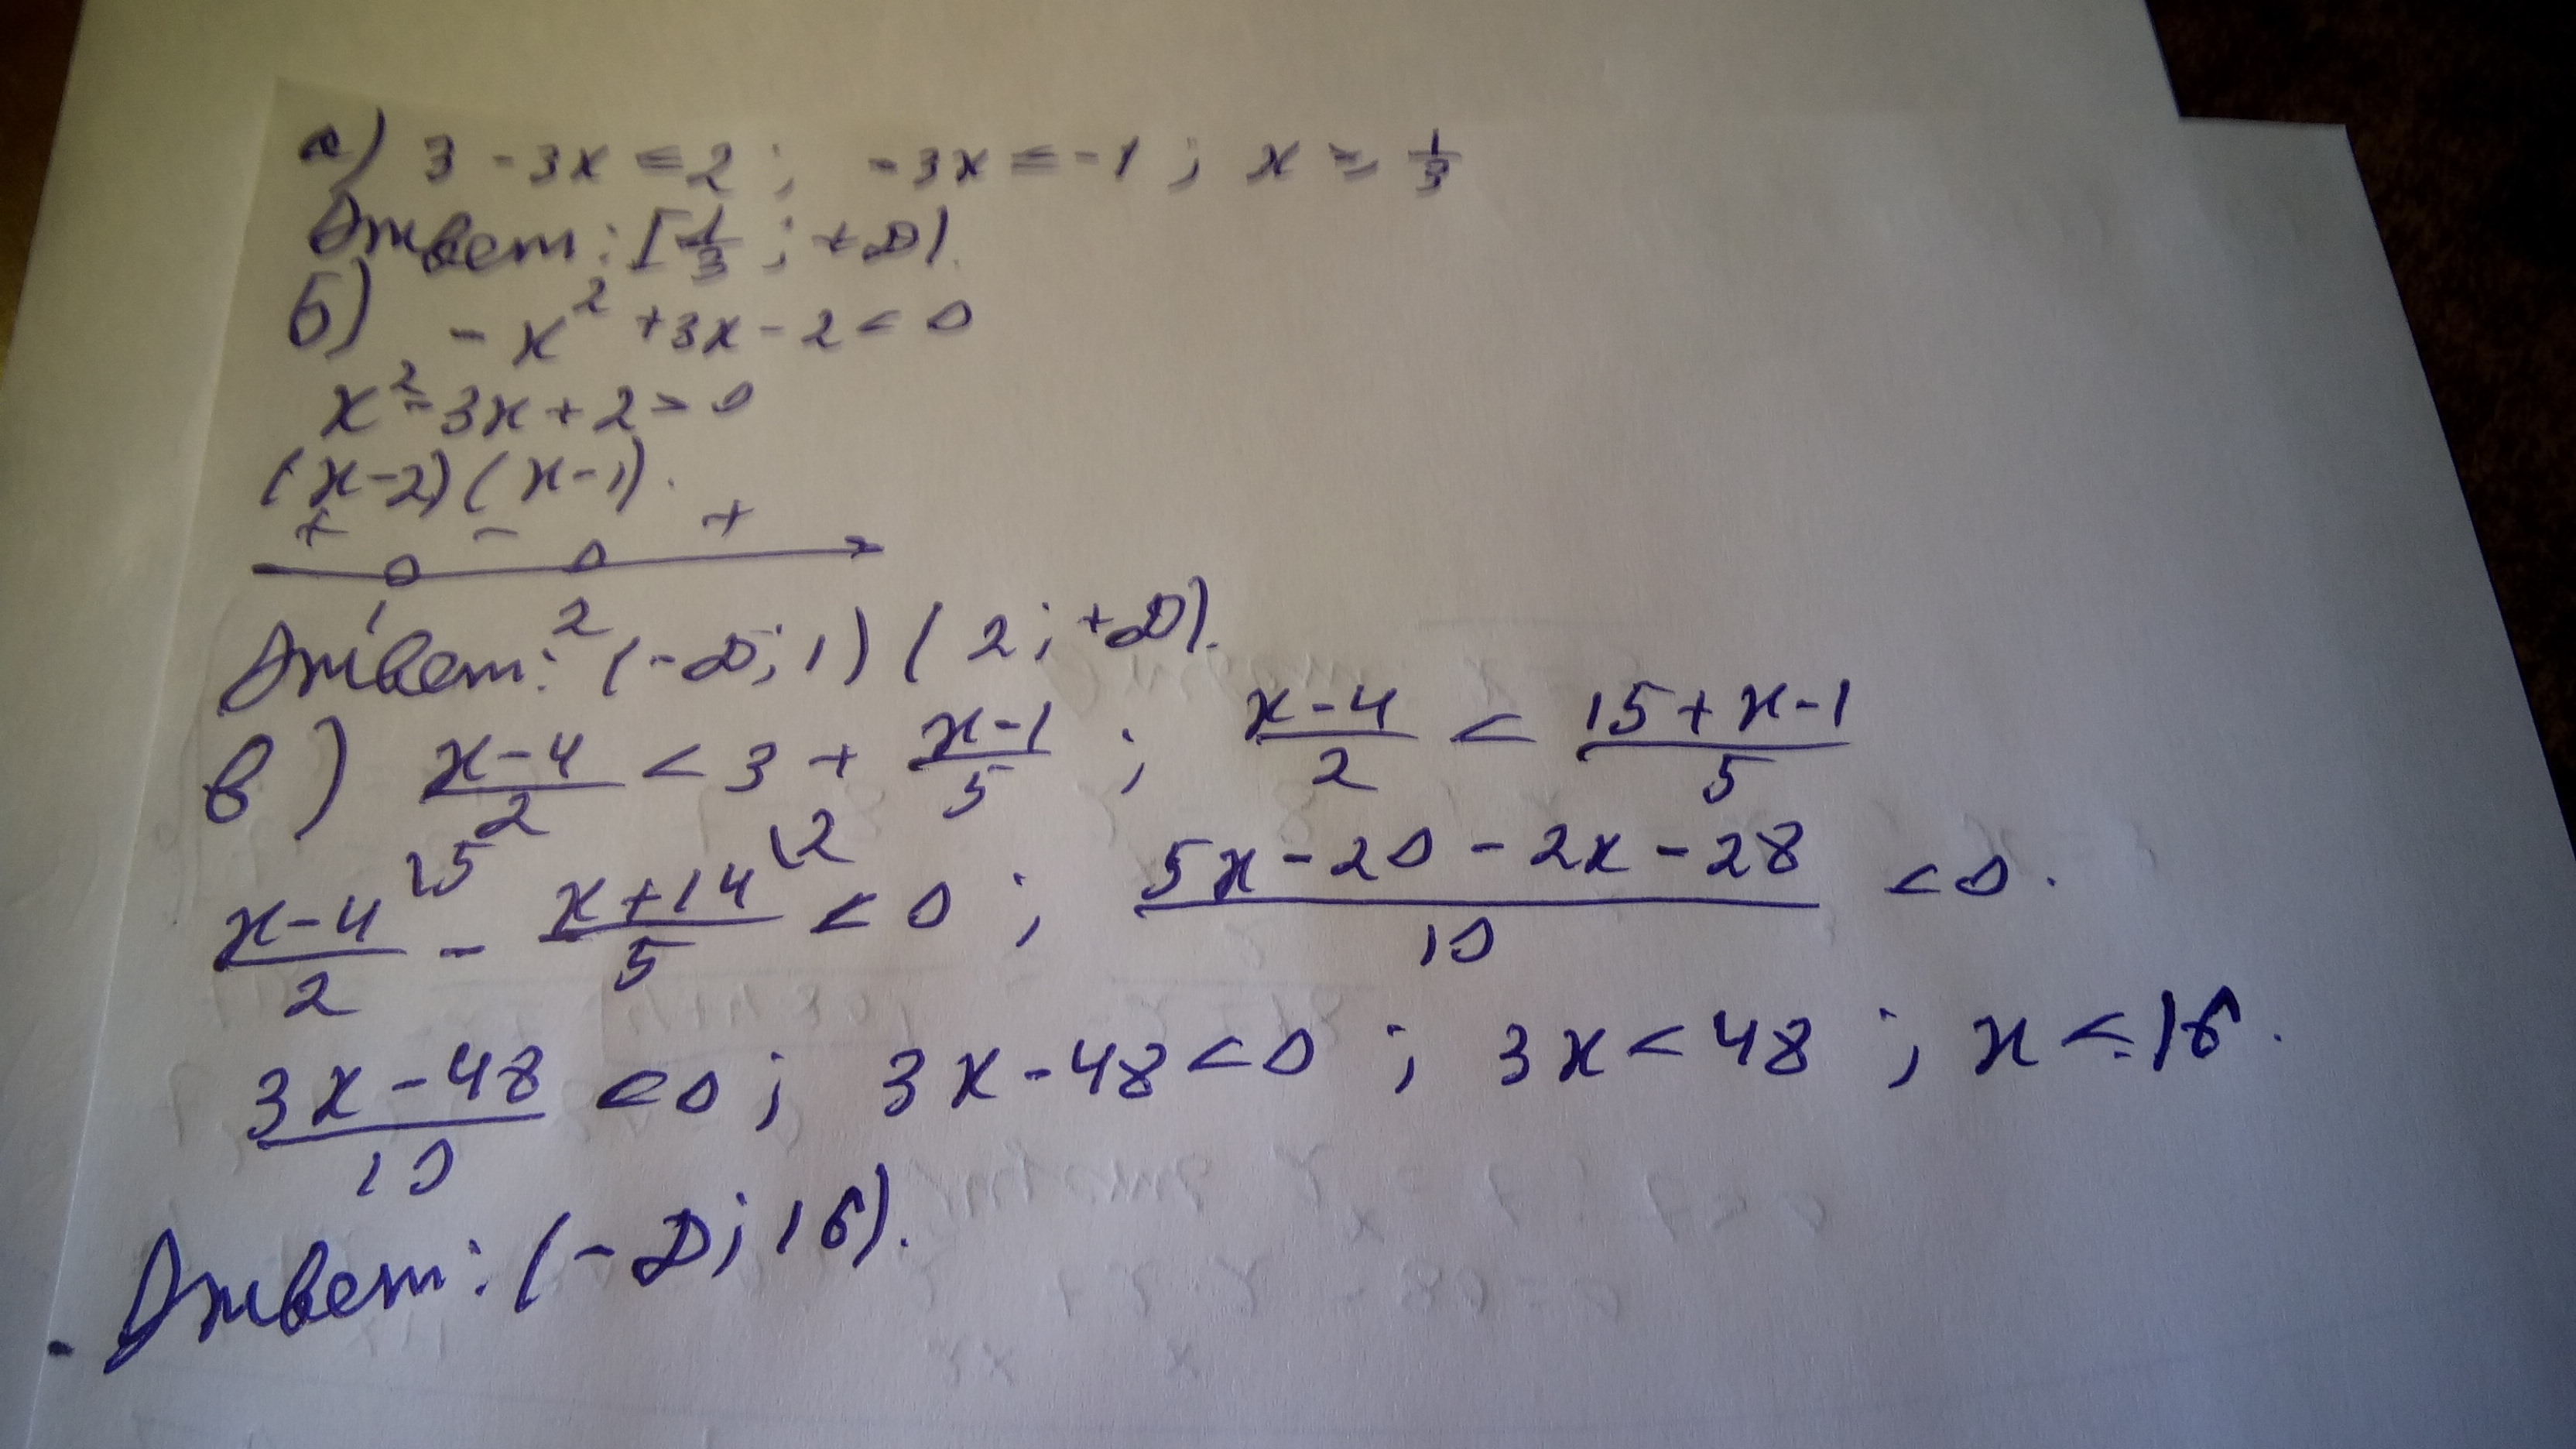 а) 3 - 3x ≤ 2; -3x ≤ -1; x ≥ 1/3
Ответ: [1/3; +∞).
б) -x² + 3x - 2 < 0
x² - 3x + 2 > 0
(x-2)(x-1).
+ - +
1 2
Ответ: (-∞; 1) (2; +∞).
в) (x-4)/2 < 3 + (x-1)/5; (x-4)/2 < (15+x-1)/5
(x-4)/2 \5 - (x+14)/5 \2 < 0; (5x-20-2x-28)/10 < 0.
(3x-48)/10 < 0; 3x-48 < 0; 3x < 48; x < 16.
Ответ: (-∞; 16).